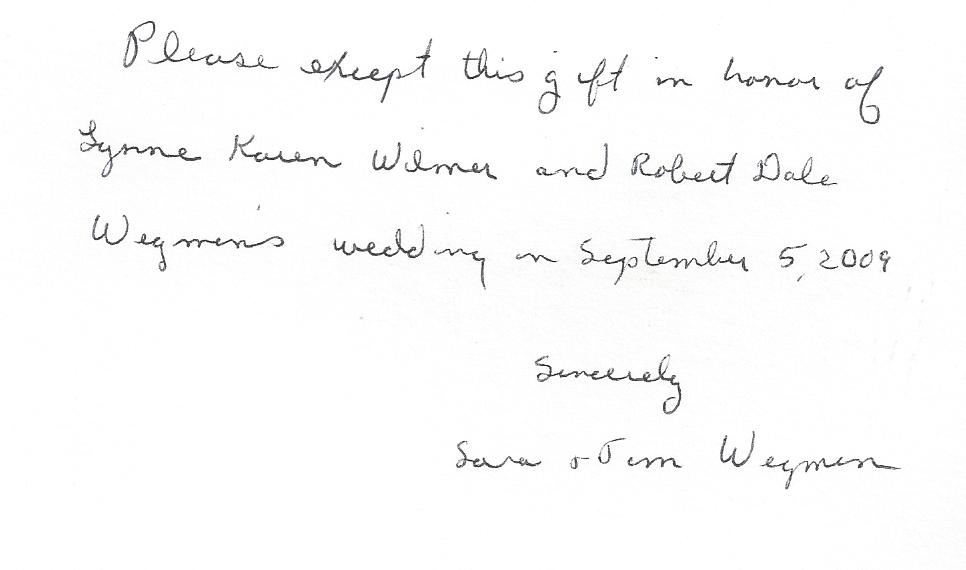 Please except this gift in honor of
Lynne Karen Wilmer and Robert Dale
Wegmen's wedding on September 5, 2009
Sincerely
Sara + Tim Wegmen